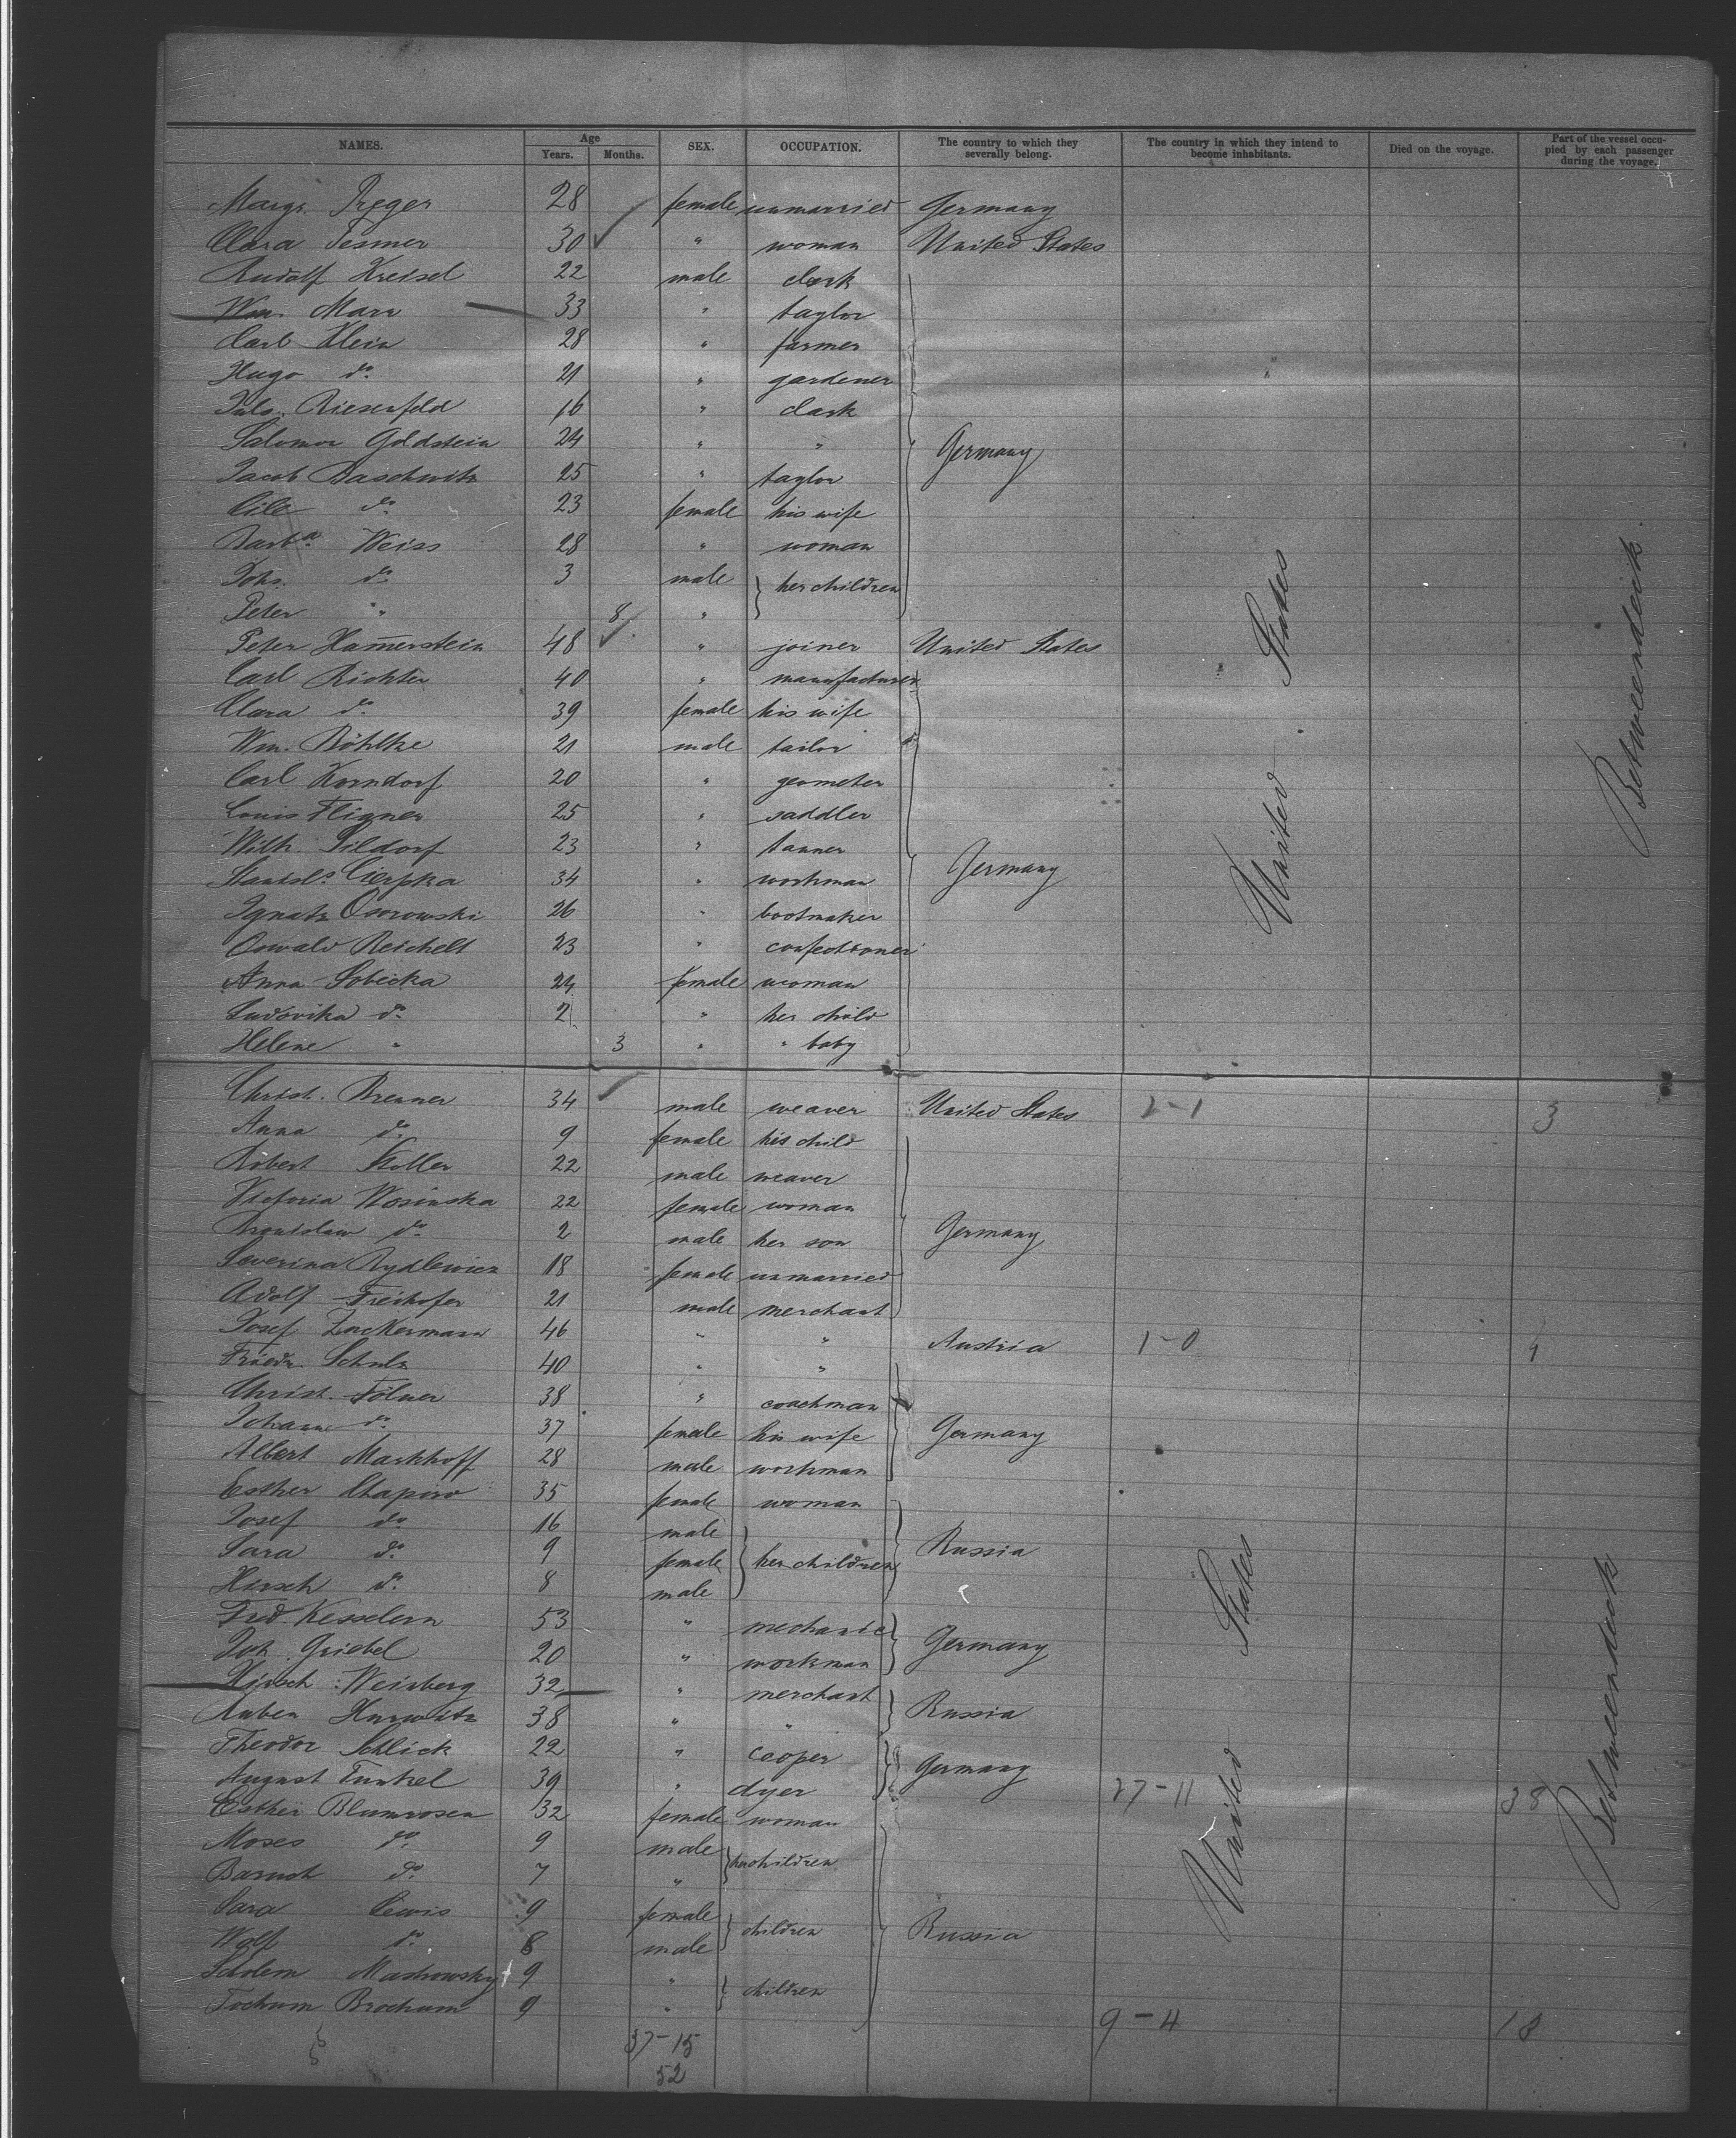 NAMES. Age Years. Months. SEX. OCCUPATION. The country to which they severally belong. The country in which they intend to become inhabitants. Died on the voyage. Part of the vessel occupied by each passenger during the voyage.
Margr. Preger 28 female unmarried Germany
Clara Tesmer 30 " woman United States
Rudolf Kreisel 22 male clerk
Wm. Marx 33 " taylor
Carl Klein 28 " farmer
Hugo do. 21 " gardener
Juls. Riesenfeld 16 " clark
Salomon Goldstein 24 " " Germany
Jacob Baschwitz 25 " taylor
Cile do. 23 female his wife
Barba. Weiss 28 " woman
Johs. do. 3 male her children
Peter " 8 "
Peter Hamerstein 48 " joiner United States
Carl Richter 40 " manufacturer
Clara do. 39 female his wife
Wm. Böhlke 21 male tailor
Carl Korndorf 20 " geometer
Louis Fligner 25 " saddler
Wilh. Sildorf 23 " tanner
Stanisls. Cierpka 34 " workman Germany
Ignatz Osorowski 26 " bootmaker
Oswald Reichelt 23 " confectioner
Anna Sobicka 24 female woman
Ludovika do. 2 " her child
Helene " 3 " " baby
United States
Betweendeck
Christ. Brenner 34 male weaver United States 2-1 3
Anna do. 9 female his child
Robert Koller 22 male weaver
Victoria Wosinska 22 female woman
Bronislaw do. 2 male her son Germany
Severina Rydlewicz 18 female unmarried
Adolf Freihofer 21 male merchant
Josef Zuckermann 46 " " Austria 1-0 1
Friedr. Schulz 40 " "
Christ. Fölner 38 " coachman
Johanne do. 37 female his wife Germany
Albert Markhoff 28 male workman
Esther Chapiro 35 female woman
Josef do. 16 male
Sara do. 9 female her children Russia
Hersch do. 8 male
Fred. Kesselern 53 " mechanic
Joh. Griebel 20 " workman Germany
Hirsch Weisberg 32 " merchant
Ruben Hurwitz 38 " " Russia
Theodor Schlick 22 " cooper
August Funkel 39 " dyer Germany 27-11 38
Esther Blumrosen 32 female woman
Moses do. 9 male her children
Baruch do. 7 "
Sara Lewis 9 female children
Wolf do. 8 male Russia
Scholem Machowsky 9 " children
Tochum Brochum 9 "
9-4 13
37-15
52
United States
Betweendeck